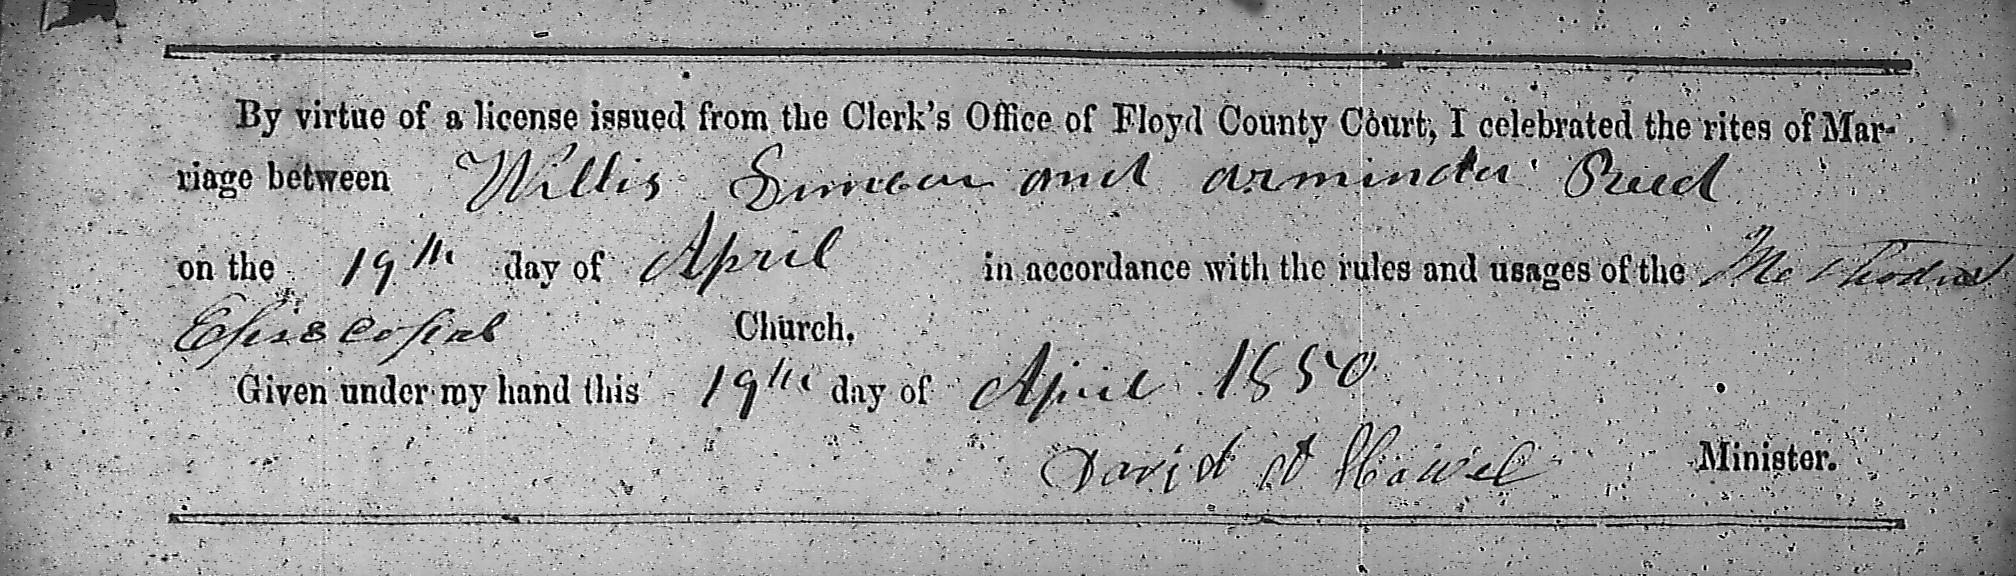 By virtue of a license issued from the Clerk's Office of Floyd County Court, I celebrated the rites of Mar-
riage between Willis Simcan and arminda Reed
on the 19th day of April in accordance with the rules and usages of the Methodist
Episcopal Church.
Given under my hand this 19th day of April 1850
David Howel Minister.